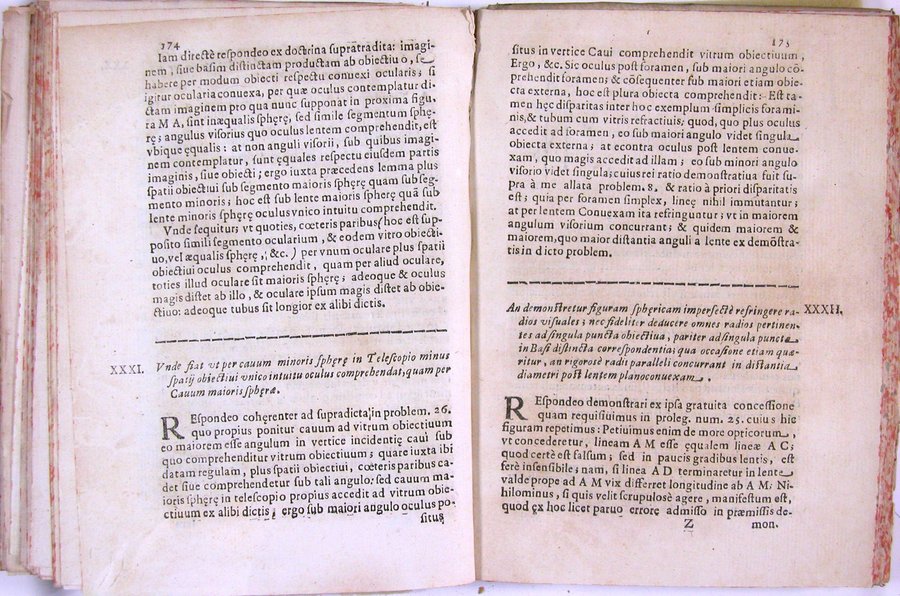 174
Iam directè respondeo ex doctrina supratradita: imagi-
nem, siue basim distinctam productam ab obiectiuo, se
habere per modum obiecti respectu conuexi ocularis; si
igitur ocularia conuexa, per quæ oculus contemplatur di-
ctam imaginem pro qua nunc supponat in proxima figu-
ra M A, sint inæqualis sphęrę, sed simile segmentum sphę-
rę; angulus visorius quo oculus lentem comprehendit, est
vbique ęqualis: at non anguli visorii, sub quibus imagi-
nem contemplatur, sunt ęquales respectu eiusdem partis
imaginis, siue obiecti; ergo iuxta præcedens lemma plus
spatii obiectiui sub segmento maioris sphęrę quam sub seg-
mento minoris; hoc est sub lente maioris sphęrę quã sub
lente minoris sphęrę oculus vnico intuitu comprehendit.
Vnde sequitur; vt quoties, cœteris paribus (hoc est sup-
posito simili segmento ocularium, & eodem vitro obiecti-
uo, vel æqualis sphęrę, &c.) per vnum oculare plus spatii
obiectiui oculus comprehendit, quam per aliud oculare,
toties illud oculare sit maioris sphęrę; adeoque & oculus
magis distet ab illo, & oculare ipsum magis distet ab obie-
ctiuo: adeoque tubus sit longior ex alibi dictis.
XXXI. Vnde fiat vt per cauum minoris sphęrę in Telescopio minus
spatij obiectiui vnico intuitu oculus comprehendat, quam per
Cauum maioris sphæræ.
REspondeo cohęrenter ad supradicta, in problem. 26.
quo propius ponitur cauum ad vitrum obiectiuum
eo maiorem esse angulum in vertice incidentię caui sub
quo comprehenditur vitrum obiectiuum; quare iuxta ibi
datam regulam, plus spatii obiectiui, cœteris paribus ca-
det siue comprehendetur sub tali angulo: sed cauum ma-
ioris sphęrę in telescopio propius accedit ad vitrum obie-
ctiuum ex alibi dictis, ergo sub maiori angulo oculus po-
situs
175
situs in vertice Caui comprehendit vitrum obiectiuum,
Ergo, &c. Sic oculus post foramen, sub maiori angulo cō-
prehendit foramen; & cōsequenter sub maiori etiam obie-
cta externa, hoc est plura obiecta comprehendit: Est ta-
men hęc disparitas inter hoc exemplum simplicis forami-
nis, & tubum cum vitris refractiuis; quod, quo plus oculus
accedit ad foramen, eo sub maiori angulo videt singula
obiecta externa; at econtra oculus post lentem conue-
xam, quo magis accedit ad illam; eo sub minori angulo
visorio videt singula; cuius rei ratio demonstratiua fuit su-
pra à me allata problem. 8. & ratio à priori disparitatis
est; quia per foramen simplex, lineę nihil immutantur;
at per lentem Conuexam ita refringuntur; vt in maiorem
angulum visorium concurrant; & quidem maiorem &
maiorem, quo maior distantia anguli a lente ex demōstra-
tis in dicto problem.
An demonstretur figuram sphęricam imperfectè refringere ra- XXXII.
dios visuales; nec fideliter deducere omnes radios pertinen-
tes ad singula puncta obiectiua, pariter ad singula puncta
in Basi distincta correspondentia; qua occasione etiam quæ-
ritur, an rigorosè radii paralleli concurrant in distantia
diametri post lentem planoconuexam.
REspondeo demonstrari ex ipsa gratuita concessione
quam requisiuimus in proleg. num. 25. cuius hic
figuram repetimus: Petiuimus enim de more opticorum,
vt concederetur, lineam A M esse ęqualem lineæ A C;
quod certè est falsum; sed in paucis gradibus lentis, est
ferè insensibile; nam, si linea A D terminaretur in lente
valde prope ad A M vix differret longitudine ab A M; Ni-
hilominus, si quis velit scrupulosè agere, manifestum est,
quod ęx hoc licet paruo errore admisso in præmissis de-
Z mon.